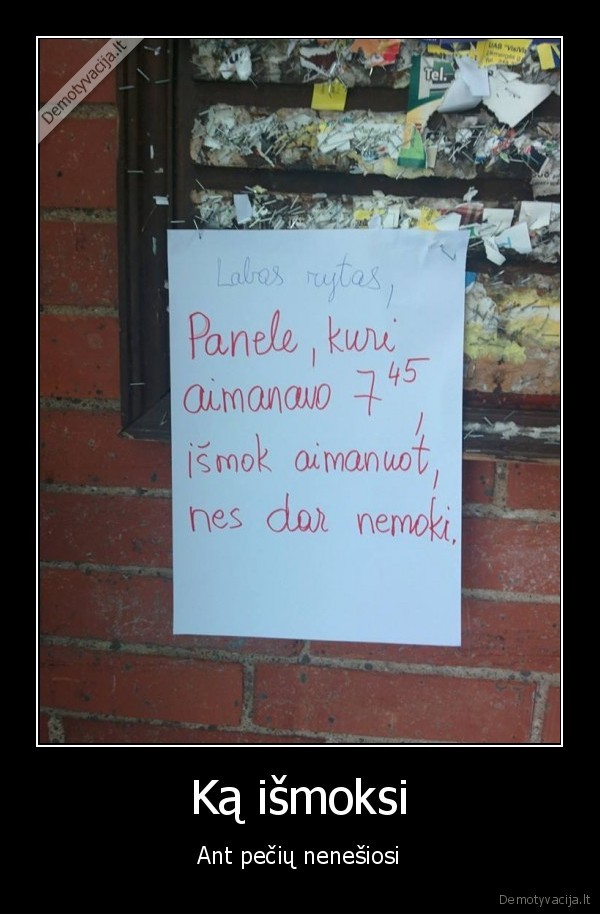 Demotyvacija.lt
Tel.
Labas rytas,
Panele, kuri
aimanavo 7 45,
išmok aimanuot,
nes dar nemoki.
Ką išmoksi
Ant pečių nenešiosi
Demotyvacija.lt